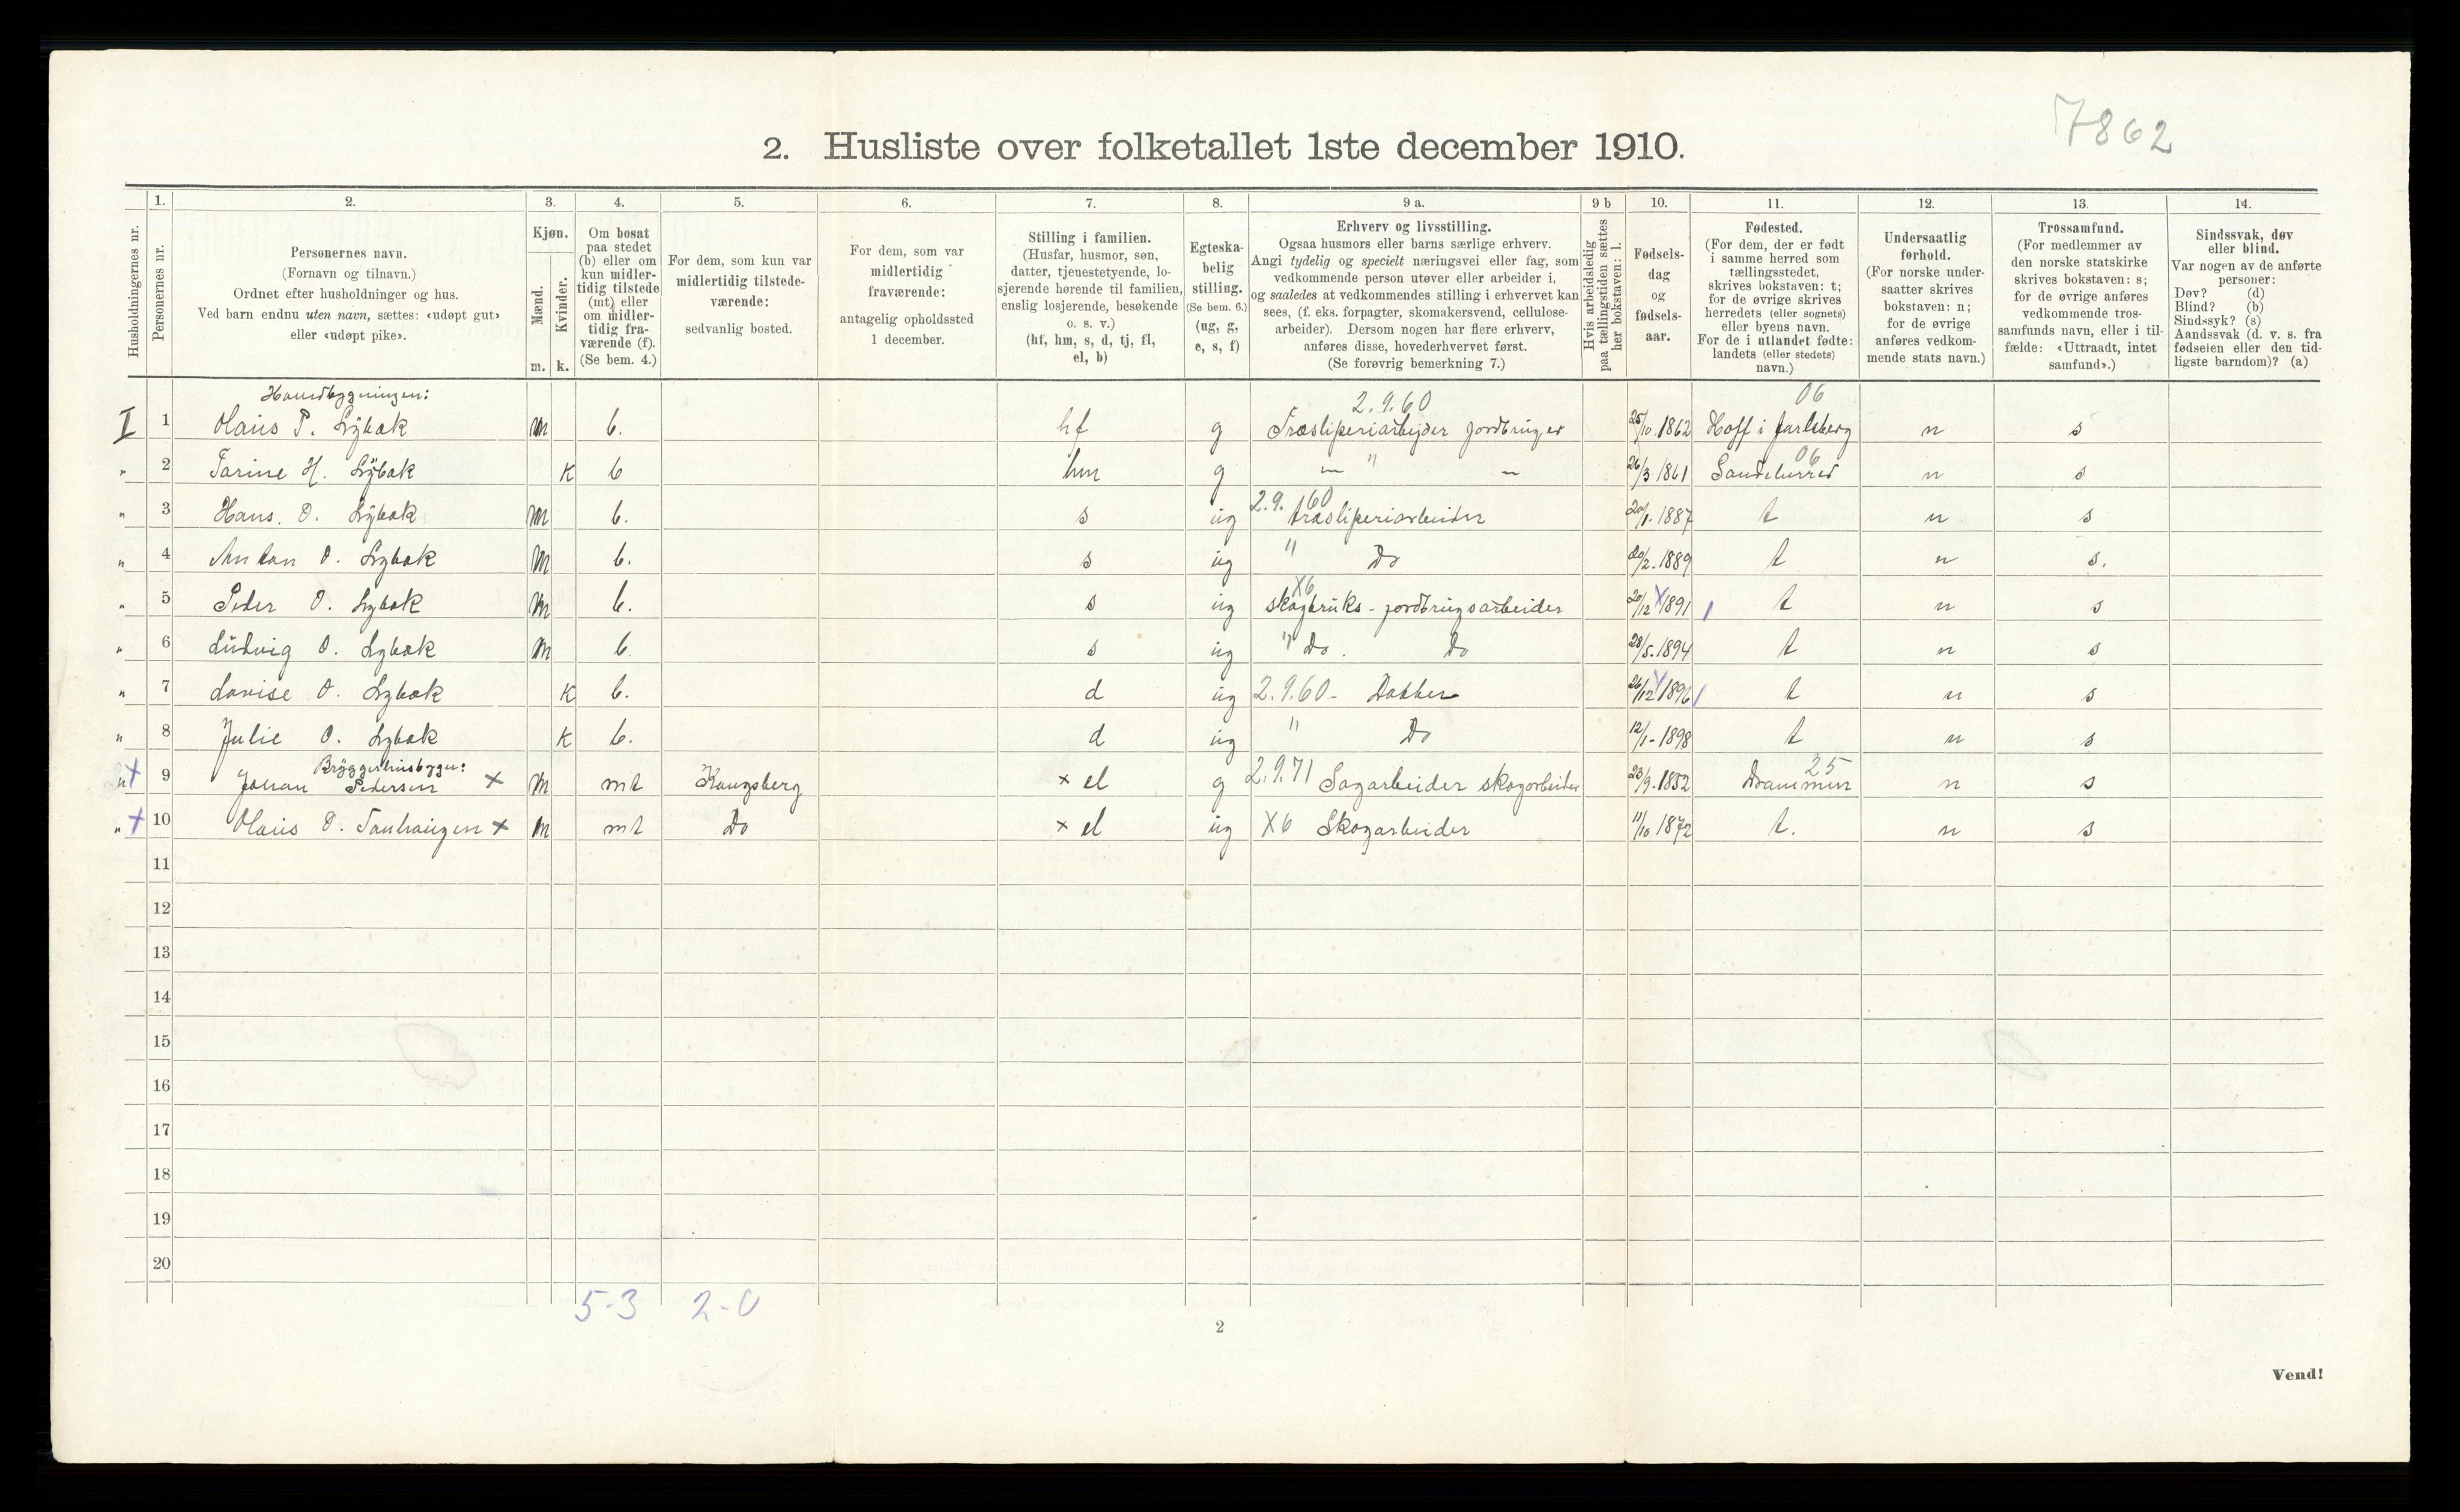 7862
2. Husliste over folketallet 1ste december 1910.
Husholdningernes nr.
1.
Personernes nr.
2.
Personernes navn.
(Fornavn og tilnavn.)
Ordnet efter husholdninger og hus.
Ved barn endnu uten navn, sættes: «udøpt gut»
eller «udøpt pike».
3.
Kjøn.
Mænd.
Kvinder.
m.
k.
4.
Om bosat
paa stedet
(b) eller om
kun midler-
tidig tilstede
(mt) eller
om midler-
tidig fra-
værende (f).
(Se bem. 4.)
5.
For dem, som kun var
midlertidig tilstede-
værende:
sedvanlig bosted.
6.
For dem, som var
midlertidig
fraværende:
antagelig opholdssted
1 december.
7.
Stilling i familien.
(Husfar, husmor, søn,
datter, tjenestetyende, lo-
sjerende hørende til familien,
enslig losjerende, besøkende
o. s. v.)
(hf, hm, s, d, tj, fl,
el, b)
8.
Egteska-
belig
stilling.
(Se bem. 6.)
(ug, g,
e, s, f)
9 a.
Erhverv og livsstilling.
Ogsaa husmors eller barns særlige erhverv.
Angi tydelig og specielt næringsvei eller fag, som
vedkommende person utøver eller arbeider i,
og saaledes at vedkommendes stilling i erhvervet kan
sees, (f. eks. forpagter, skomakersvend, cellulose-
arbeider). Dersom nogen har flere erhverv,
anføres disse, hovederhvervet først.
(Se forøvrig bemerkning 7.)
9 b
Hvis arbeidsledig
paa tællingstiden sættes
her bokstaven: l.
10.
Fødsels-
dag
og
fødsels-
aar.
11.
Fødested.
(For dem, der er født
i samme herred som
tællingsstedet,
skrives bokstaven: t;
for de øvrige skrives
herredets (eller sognets)
eller byens navn.
For de i utlandet fødte:
landets (eller stedets)
navn.)
12.
Undersaatlig
forhold.
(For norske under-
saatter skrives
bokstaven: n;
for de øvrige
anføres vedkom-
mende stats navn.)
13.
Trossamfund.
(For medlemmer av
den norske statskirke
skrives bokstaven: s;
for de øvrige anføres
vedkommende tros-
samfunds navn, eller i til-
fælde: «Uttraadt, intet
samfund».)
14.
Sindssvak, døv
eller blind.
Var nogen av de anførte
personer:
Døv? (d)
Blind? (b)
Sindssyk? (s)
Aandssvak (d. v. s. fra
fødselen eller den tid-
ligste barndom)? (a)
2.9.60 06
I 1 Olaus P. Lybæk m b. hf g Træsliperiarbeider jordbruger 25/10.1862 Hoff i Jarlsberg n s
06
" 2 Tarine H. Lybæk k b hm g — " — 26/3 1861 n s
2.9.60
" 3 Hans. O. Lybæk m b. s ug træsliperiarbeider 20/1-1887 t n s
" 4 Anton O. Lybæk m b. s ug " Do 20/2-1889 t n s.
X6
" 5 Peder O. Lybæk m b. s ug skogbruks-jordbrugsarbeider 20/12 1891 t n s
" 6 Ludvig O. Lybæk m b. s ug " Do. Do 28/5-1894 t n s
" 7 Lovise O. Lybæk k b. d ug 2.9.60- Datter 26/12 1896 t n s
" 8 Julie O. Lybæk k b. d ug " Do 12/1-1898 t n s
Bryggerhusbygn: 25
" + 9 Johan Pedersen × m mt Kongsberg × el g 2.9.71 Sagarbeider skogarbeider 23/9-1852 Drammen n s
" + 10 Olaus O. × m mt Do × el ug X6 Skogarbeider 11/10 1872 t. n s
11
12
13
14
15
16
17
18
19
20
5-3 2-0
2
Vend!